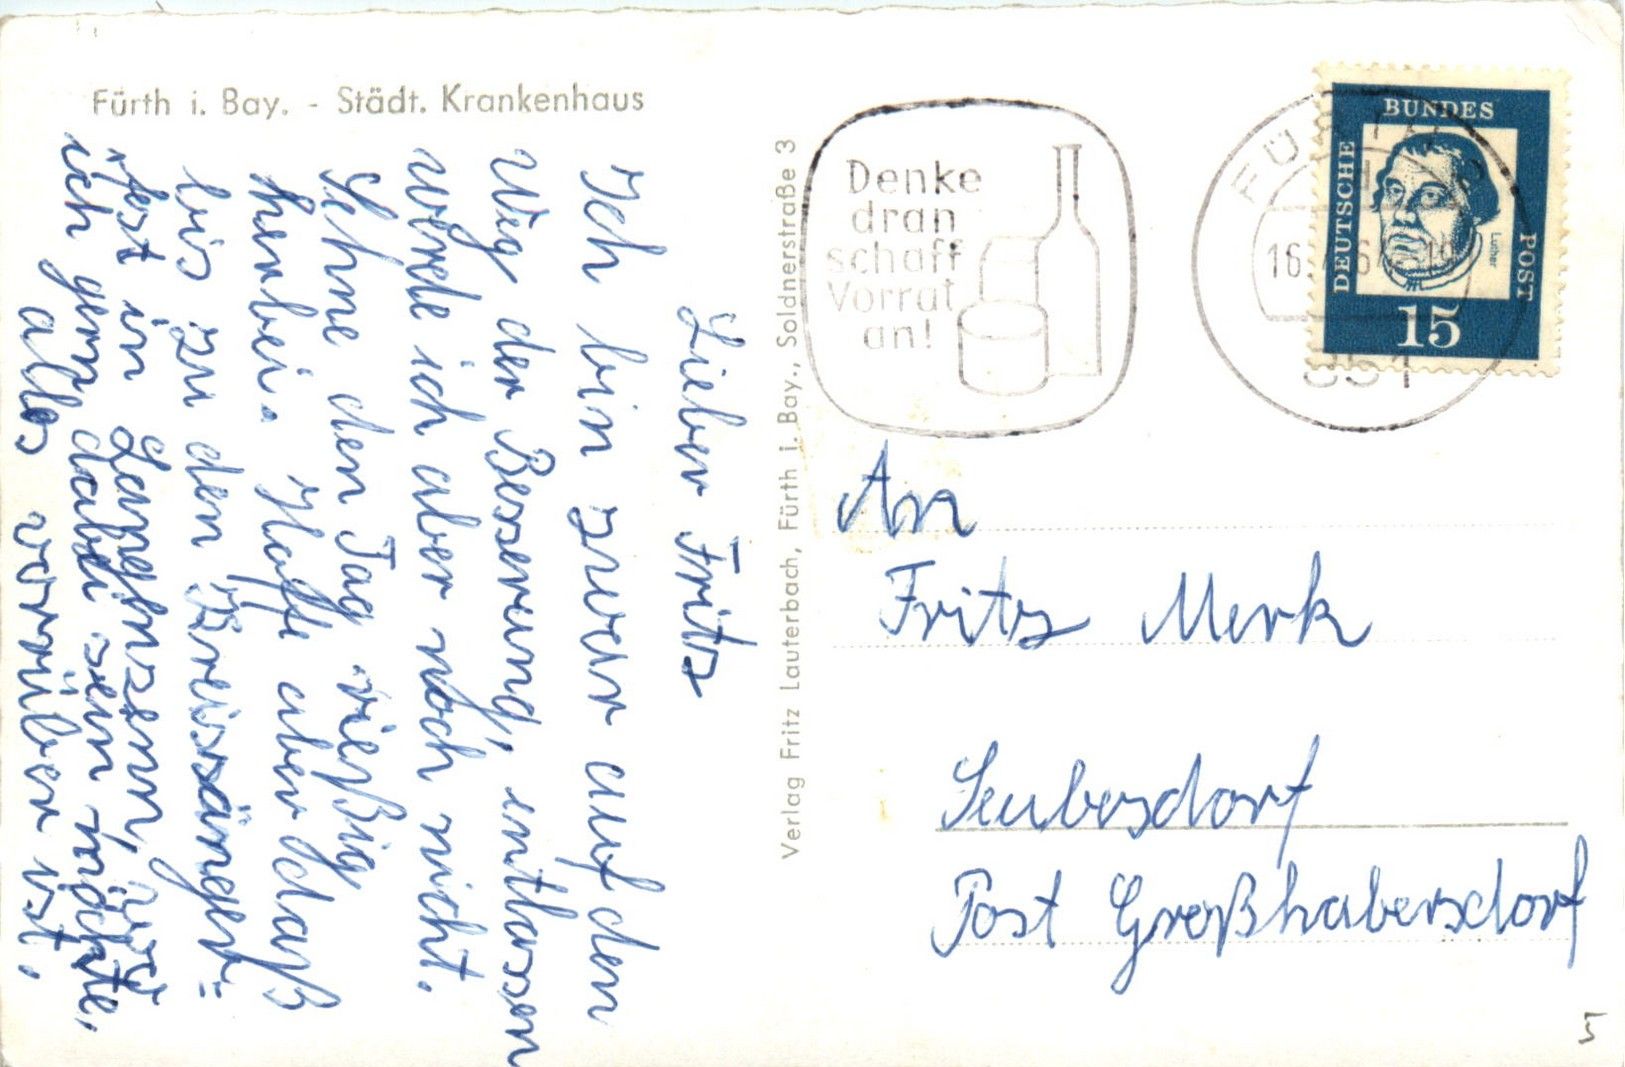 Fürth i. Bay. - Städt. Krankenhaus
Lieber Fritz
Ich bin zwar auf dem
Weg der Besserung, entlassen
werde ich aber noch nicht.
Sehne den Tag rießig
herbei. Hoffe aber daß
bis zu den Kreissänger=
fest in Langenzenn, wo
ich gern dabei sein möchte,
alles vorrüber ist.
Verlag Fritz Lauterbach, Fürth i. Bay., Soldnerstraße 3
Denke
dran
schaff
Vorrat
an!
FÜRTH
16.
851
DEUTSCHE
BUNDES
POST
Luther
15
An
Fritz Merk
Seubersdorf
Post Großhabersdorf
5